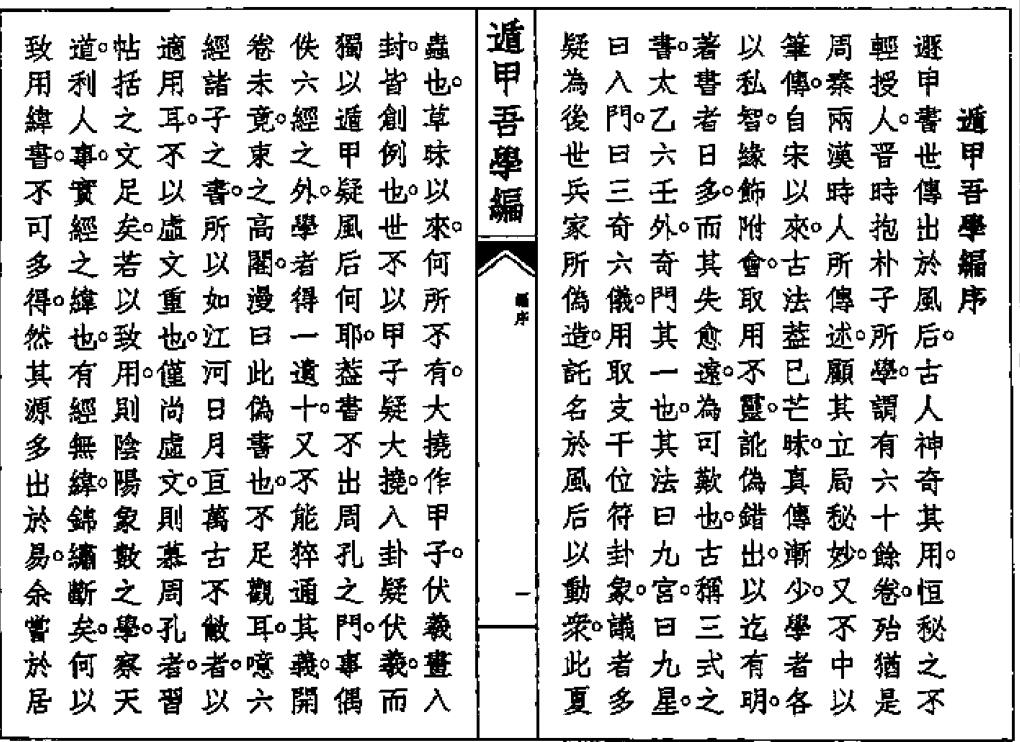 遁甲吾學編序
遯甲書世傳出於風后。古人神奇其用。恒秘之不
輕授人。晋時抱朴子所學。謂有六十餘卷。殆猶是
周秦兩漢時人所傳述。顧其立局秘妙。又不中以
筆傳。自宋以來。古法葢已芒昧。真傳漸少。學者各
以私智。緣飾附會。取用不靈。訛偽錯出。以迄有明。
著書者日多。而其失愈遠。為可歎也。古稱三式之
書。太乙六壬外。奇門其一也。其法曰九宮。曰九星。
曰入門。曰三奇六儀。用取支干位符卦象。議者多
疑為後世兵家所偽造。託名於風后以動衆。此夏
遁甲吾學編
編序
一
蟲也。草昧以來。何所不有。大撓作甲子。伏羲畫入
封。皆創例也。世不以甲子疑大撓。入卦疑伏羲。而
獨以遁甲疑風后何耶。葢書不出周孔之門。事偶
佚六經之外。學者得一遺十。又不能猝通其義。開
卷未竟。束之高閣。漫曰此偽書也。不足觀耳。噫六
經諸子之書。所以如江河日月亘萬古不敝者。以
適用耳。不以虛文重也。僅尚虛文。則慕周孔者。習
帖括之文足矣。若以致用。則陰陽象數之學。察天
道。利人事。實經之緯也。有經無緯。錦繡斷矣。何以
致用緯書。不可多得。然其源多出於易。余嘗於居